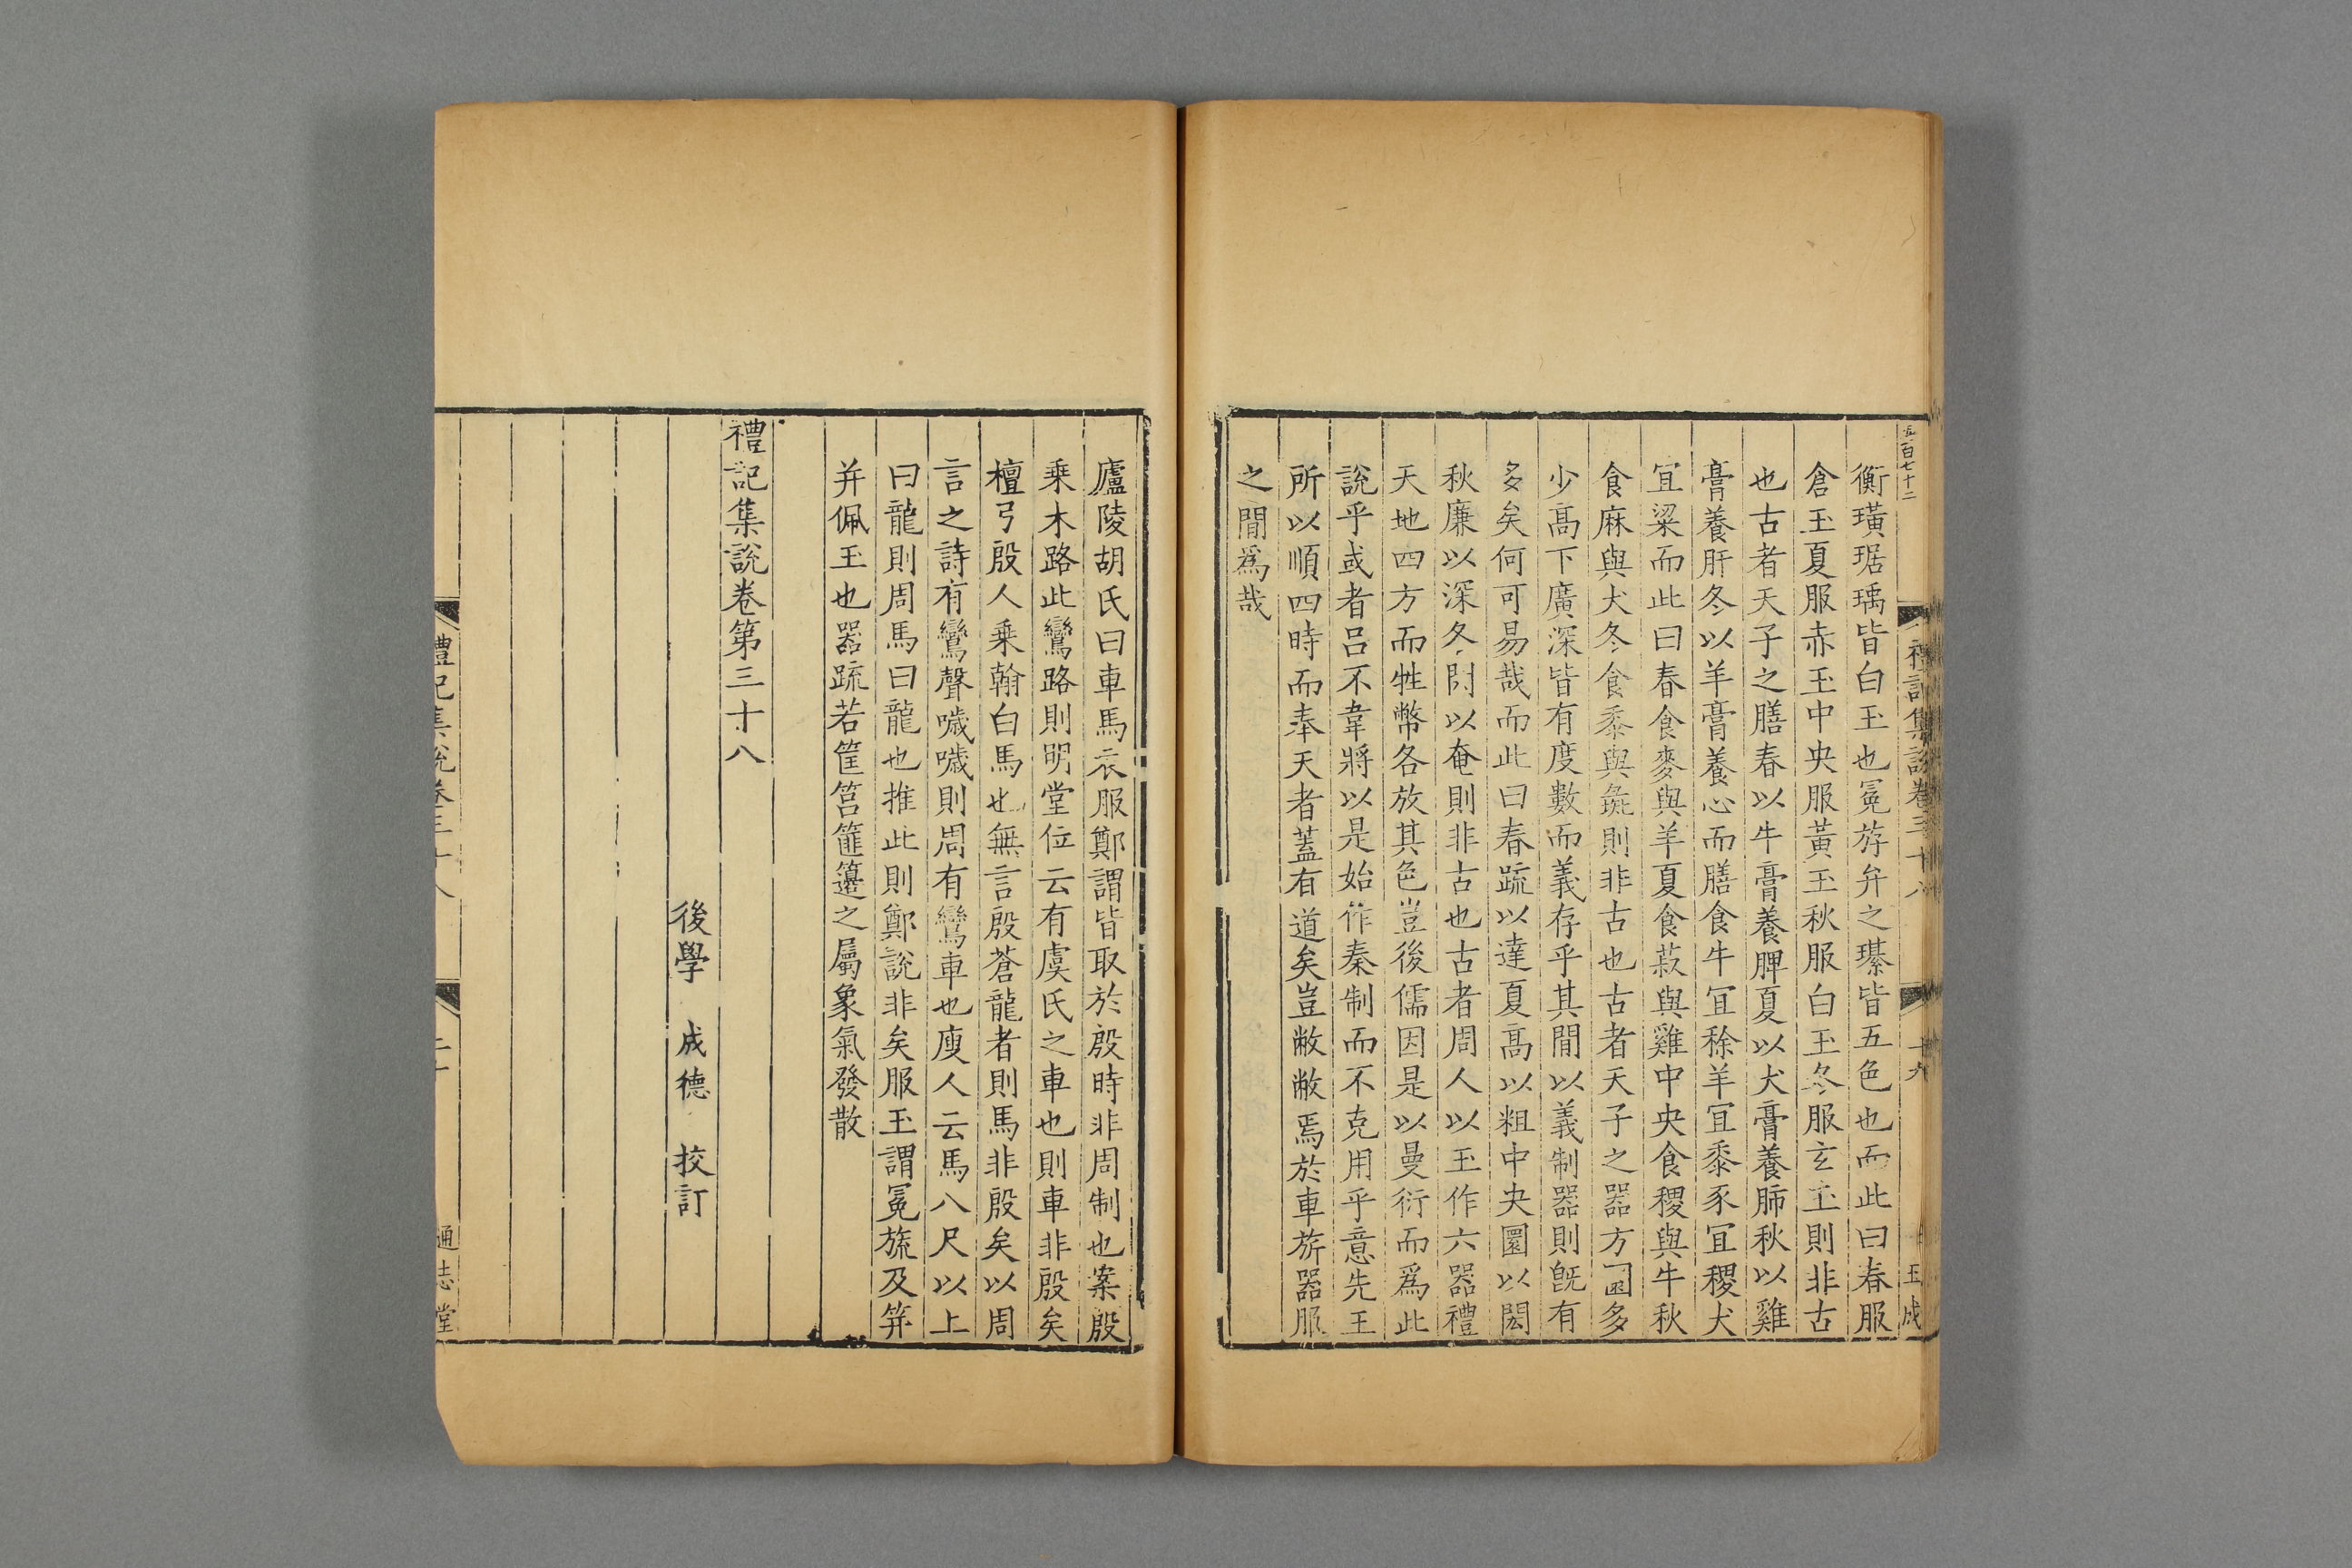 五百七十二
禮記集說卷三十八
十九
玉成
衡璜琚瑀皆白玉也冕斿弁之璂皆五色也而此曰春服
倉玉夏服赤玉中央服黃玉秋服白玉冬服玄玉則非古
也古者天子之膳春以牛膏養脾夏以犬膏養肺秋以雞
膏養肝冬以羊膏養心而膳食牛冝稌羊冝黍豕冝稷犬
冝粱而此曰春食麥與羊夏食菽與雞中央食稷與牛秋
食麻與犬冬食黍與彘則非古也古者天子之器方圓多
少髙下廣深皆有度數而義存乎其閒以義制器則旣有
多矣何可易哉而此曰春疏以達夏髙以粗中央圜以閎
秋廉以深冬閎以奄則非古也古者周人以玉作六器禮
天地四方而牲幣各放其色豈後儒因是以曼衍而爲此
說乎或者呂不韋將以是始作秦制而不克用乎意先王
所以順四時而奉天者蓋有道矣豈敝敝焉於車旂器服
之閒爲哉
廬陵胡氏曰車馬衣服鄭謂皆取於殷時非周制也案殷
乗木路此鸞路則明堂位云有虞氏之車也則車非殷矣
檀弓殷人乗翰白馬也無言殷蒼龍者則馬非殷矣以周
言之詩有鸞聲噦噦則周有鸞車也廋人云馬八尺以上
曰龍則周馬曰龍也推此則鄭說非矣服玉謂冕旒及笄
并佩玉也器疏若筐筥篚籩之屬象氣發散
禮記集說卷第三十八
後學 成德 挍訂
禮記集說卷三十八
二十
通志堂